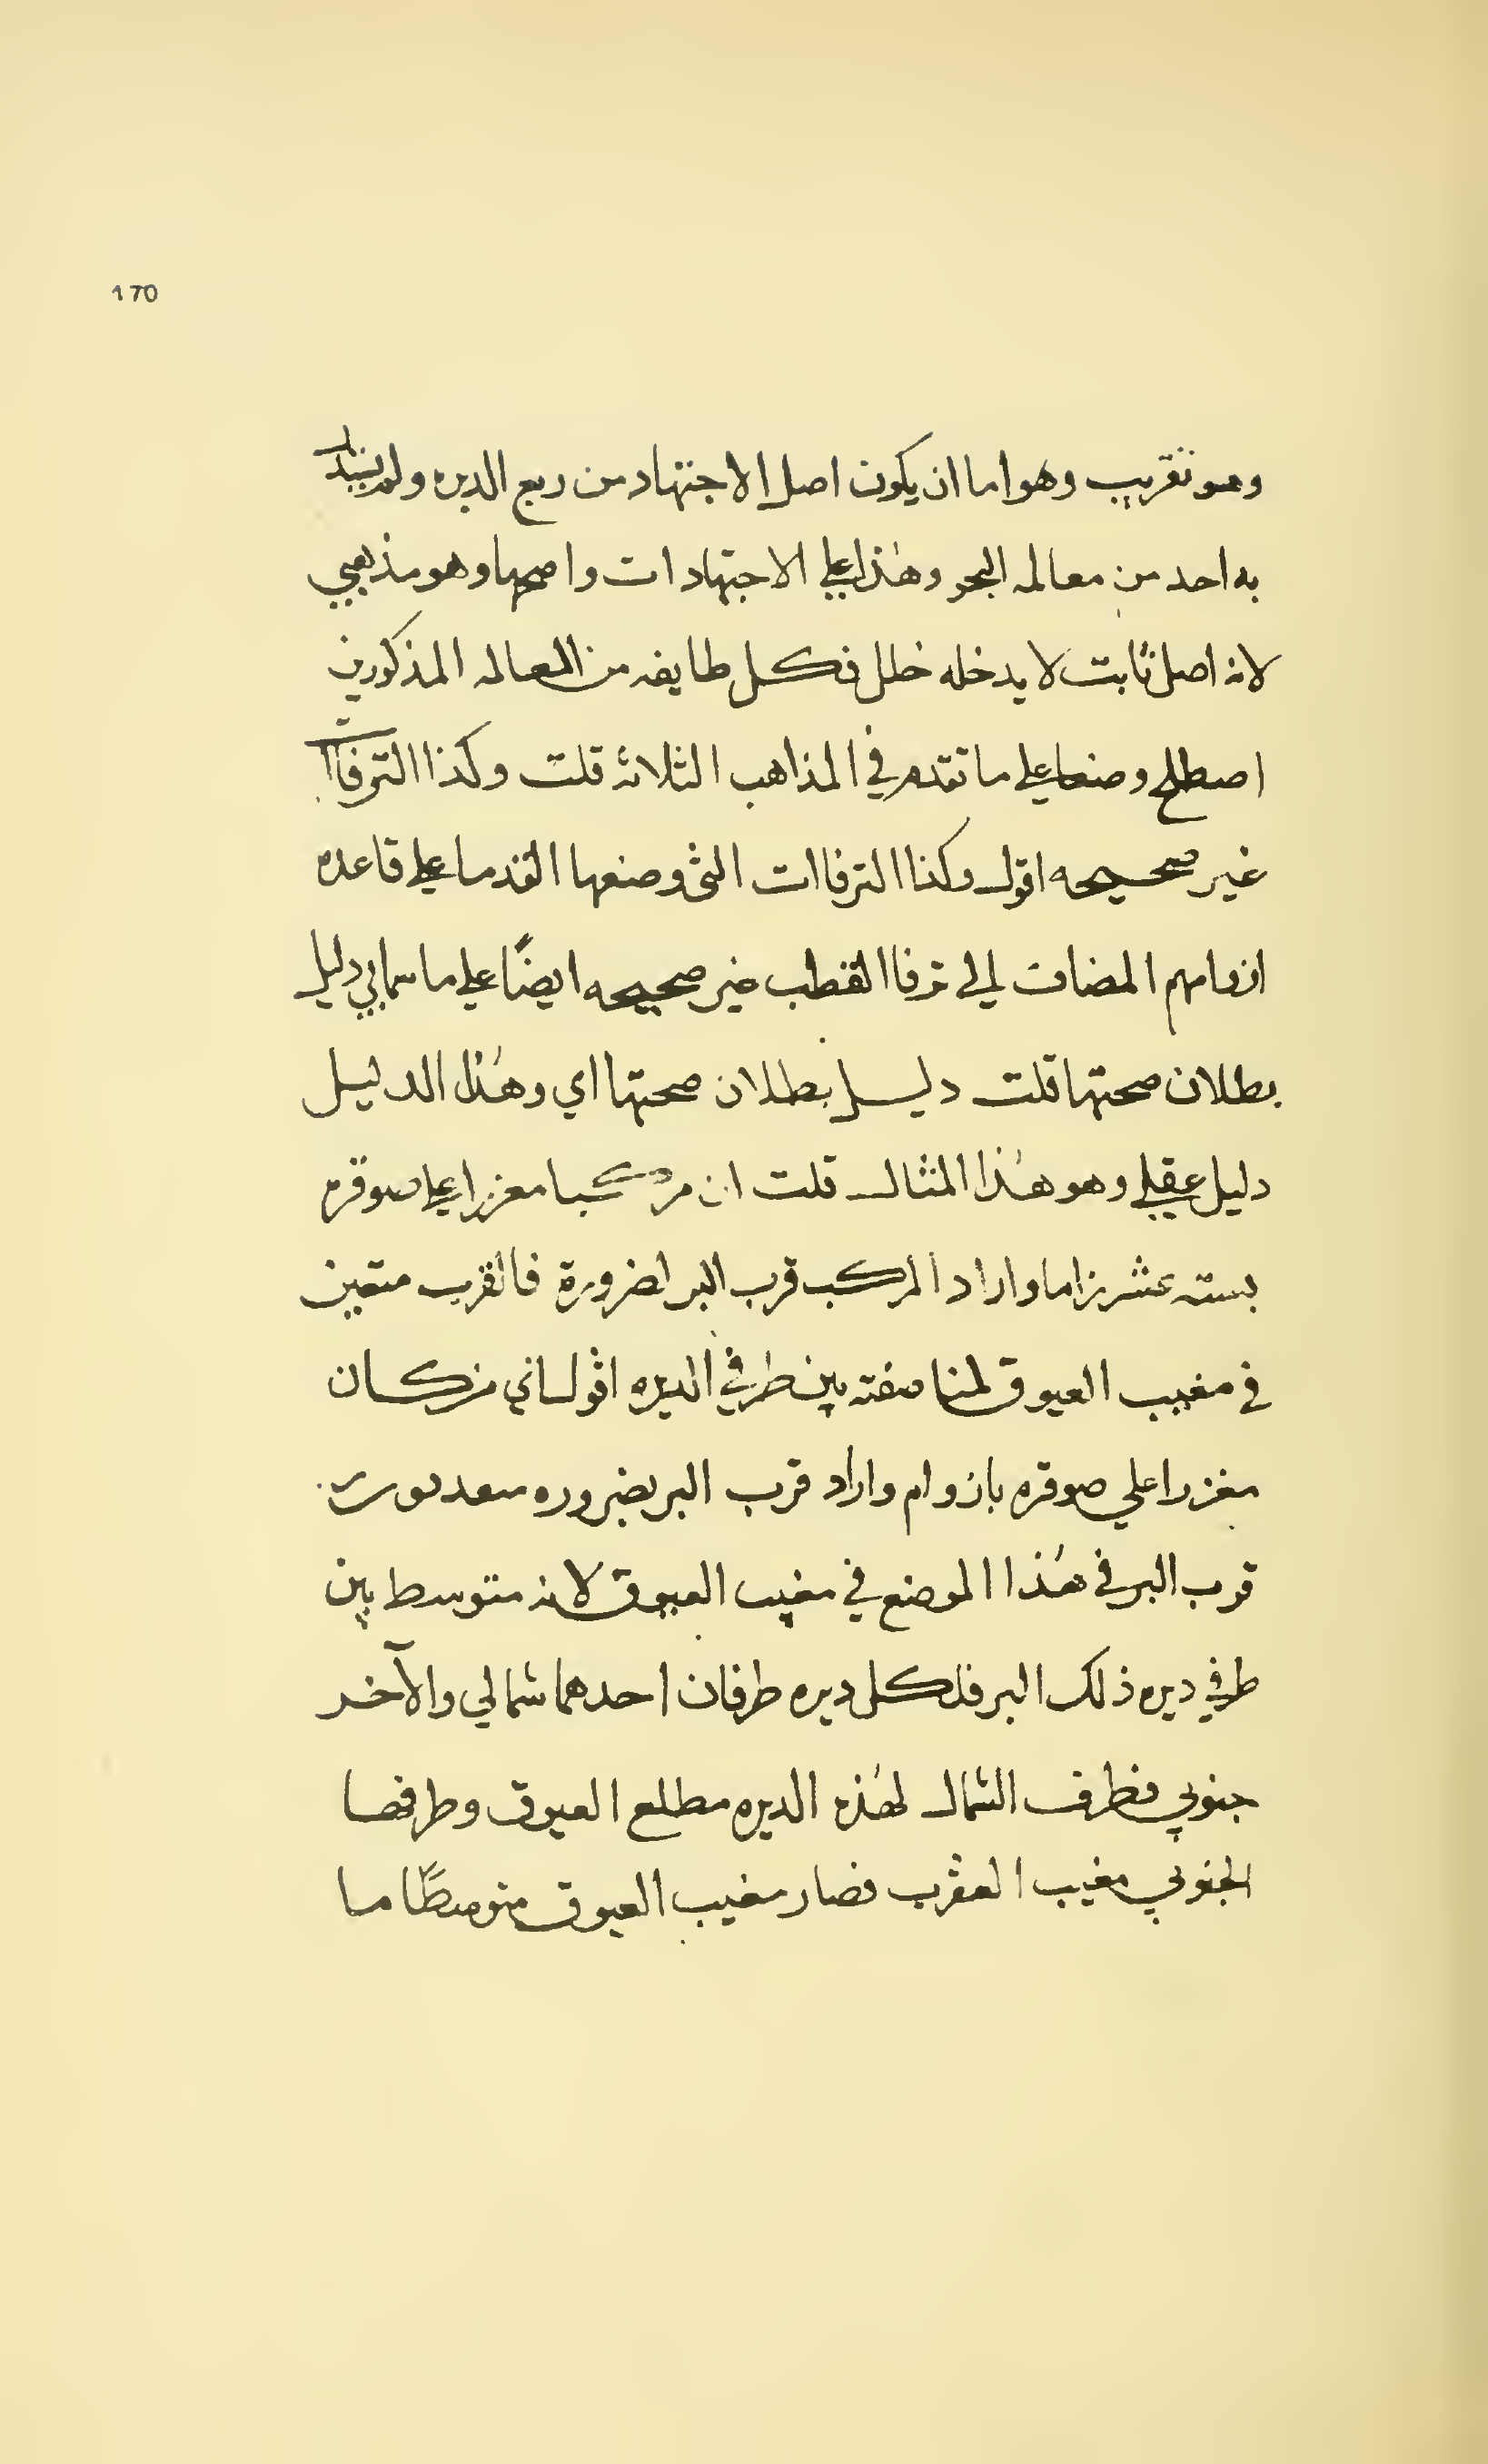 170
وهو تقريب وهو اما ان يكون اصل الاجتهاد من ربع الديره ولم
به احد من معالمه البحر وهٰذا على الاجتهادات واصحها وهو مذهبي
لانه اصل ثابت لا يدخله خلل فكل طايفه من المعالمه المذكورين
اصطلح وضعا على ما تقدم في المذاهب الثلاثه قلت وكذا الترفاات
غير صحيحه اقول وكذا الترفاات التي وضعها القدما على قاعده
ازوامهم المضاف الى ترفا القطب غير صحيحه ايضًا على ما سيأتي دليل
بطلان صحتها قلت دليل بطلان صحتها اي وهٰذا الدليل
دليل عقلي وهو هٰذا المثال قلت ان مركبا مغزرا على صوقره
بسته عشر زاما واراد المركب قرب البر لضرورة فالقرب متعين
في مغيب العيوق لمناصفته بين طرفي الديره اقول اي من كان
مغزرا علي صوقره بازوام واراد قرب البر بضروره
قرب البر في هٰذا الموضع في مغيب العيوق لانه متوسط بين
طرفي ديره ذلك البر فلكل ديره طرفان احدهما شمالي والآخر
جنوبي فطرف الشمال لهٰذه الديره مطلع العيوق وطرفها
الجنوبي مغيب العقرب فصار مغيب العيوق متوسطًا ما